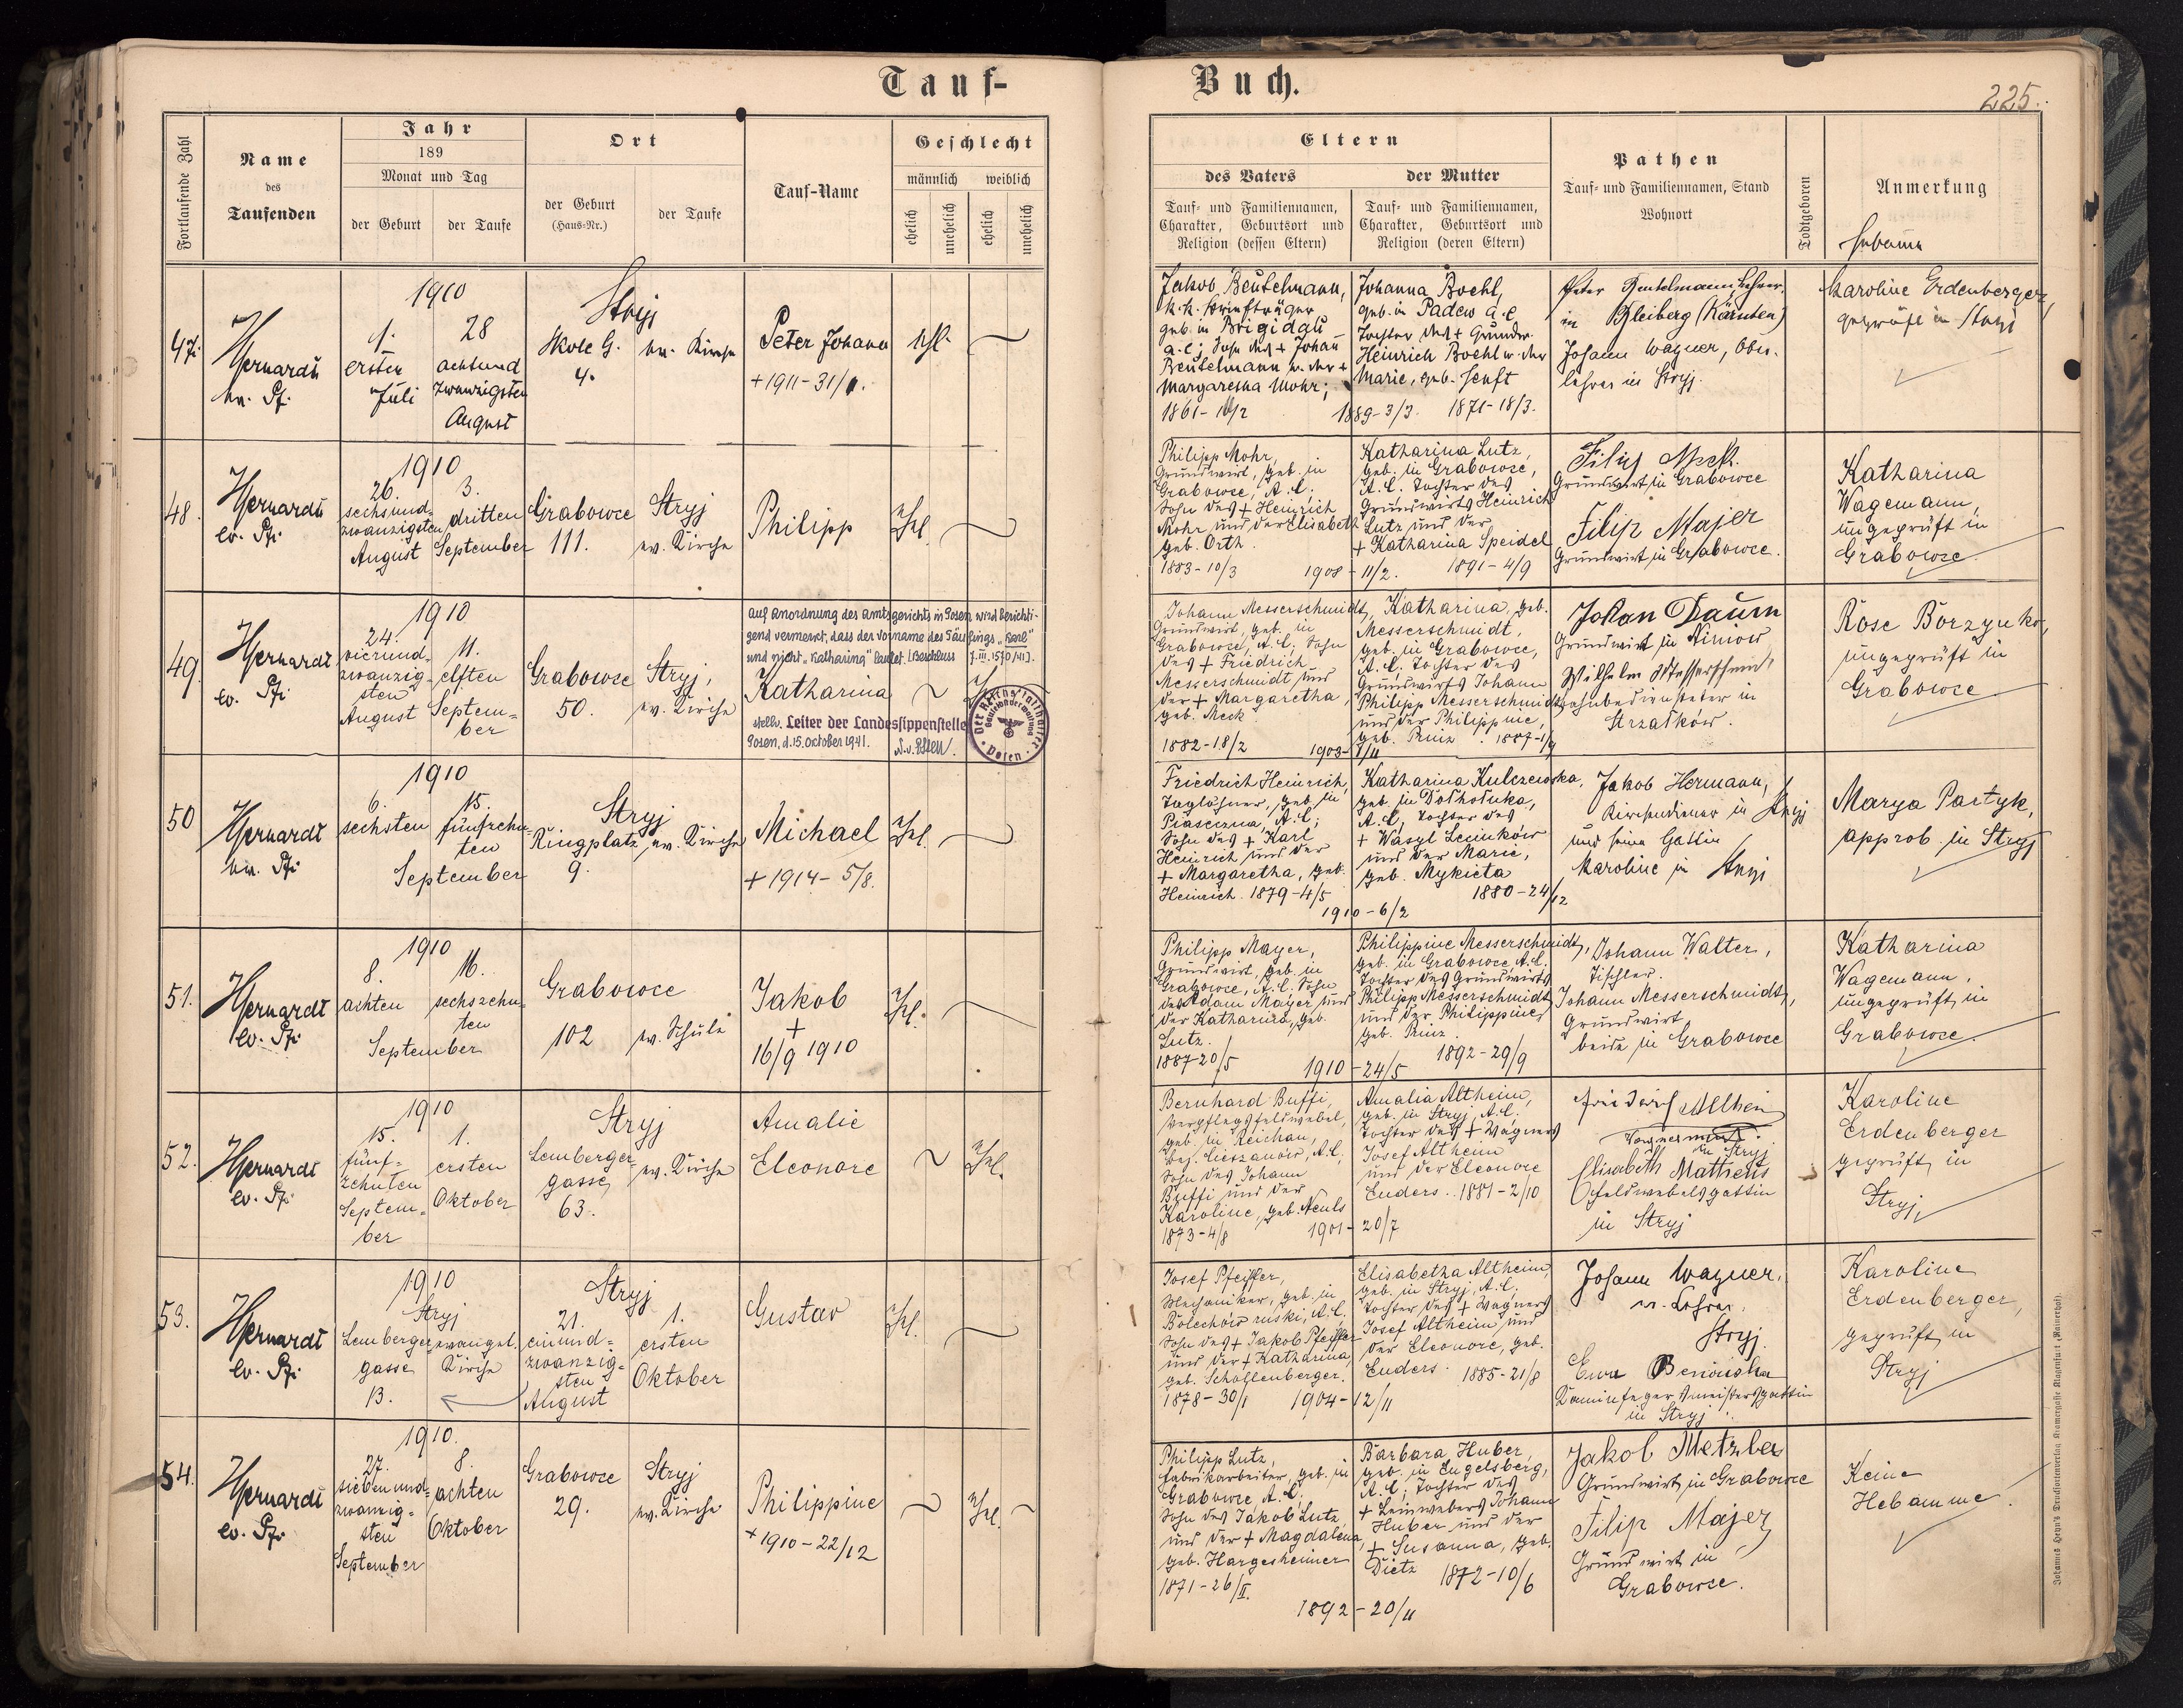 Tauf-
Buch.
225.
Fortlaufende Zahl
Name
des
Taufenden
Jahr
189
Monat und Tag
der Geburt
der Taufe
Ort
der Geburt
(Haus-Nr.)
der Taufe
Tauf-Name
Geschlecht
männlich weiblich
ehelich
unehelich
ehelich
unehelich
Eltern
des Vaters
der Mutter
Tauf- und Familiennamen,
Charakter, Geburtsort und
Religion (dessen Eltern)
Tauf- und Familiennamen,
Charakter, Geburtsort und
Religion (deren Eltern)
Pathen
Tauf- und Familiennamen, Stand
Wohnort
Todtgeboren
Anmerkung
Hebamme
47.
1910
1.
ersten
Juli
28
achtund
zwanzigsten
August
Stryj
Skole G.
4.
ev. Kirche
Peter Johann
+ 1911-31/1.
ehl.
Jakob Beutelmann,
k.k. Briefträger
geb. in Brigidau
A.C; Sohn des + Johann
Beutelmann u. der +
Margaretha Mohr;
1861-
1889-3/3.
Johanna Boehl,
geb. in Padew A.C
Tochter des + Grundw.
Heinrich Boehl u. der
Marie, geb. Senft
1871-18/3.
Peter Beutelmann Lehrer
in Bleiberg (Kärnten)
Johann Wagner, Ober-
lehrer in Stryj.
Karoline Erdenberger,
geprüft in Stryj
48.
ev. Pf.
1910
26.
sechsund-
zwanzigsten
August
3.
dritten
September
Grabowce
111.
Stryj
ev. Kirche
Philipp
Ehel.
Philipp Mohr,
Grundwirt, geb. in
Grabowce, A.C.;
Sohn des + Heinrich
Mohr und der Elisabeth
geb. Orth.
1883-10/3
1908-11/2.
Katharina Lutz,
geb. in Grabowce,
A.C. Tochter des
Grundwirts Heinrich
Lutz und der
+ Katharina Speidel
1891-4/9
Filip Meck
Grundwirt in Grabowce
Filip Majer
Grundwirt in Grabowce.
Katharina
Wagemann,
ungeprüft in
Grabowce.
49.
ev. Pf.
1910
24.
vierund-
zwanzig-
sten
August
11.
elften
Septem-
ber
Grabowce
50.
Stryj,
ev. Kirche
Auf Anordnung des Amtsgerichts in Posen wird berichti-
gend vermerkt, dass der Vorname des Täuflings „Karl"
und nicht „Katharina" lautet. (Beschluss 7.III.1570/41).
Katharina
stellv. Leiter der Landessippenstelle
Posen, d. 15. October 1941.
Der Reichsstatthalter
Posen
Johann Messerschmidt,
Grundwirt, geb. in
Grabowce, A.C; Sohn
des + Friedrich
Messerschmidt und
der + Margaretha
geb. Meck
1882-18/2
1903-7/11
Katharina, geb.
Messerschmidt,
geb. in Grabowce,
A.C. Tochter des
Grundwirts Johann
Philipp Messerschmidt
und der Philippine,
geb. Prinz.
Johan Daum
Grundwirt in
Wilhelm Messerschmidt
Bahnbediensteter in
Strzałków.
Rose Borzynko,
ungeprüft in
Grabowce
50
1910
6.
sechsten
15.
fünfzehn-
ten
September
Stryj
Ringplatz
9.
ev. Kirche
Michael
+ 1914-5/8.
Ehel.
Friedrich Heinrich,
Taglöhner, geb. in
Piaseczna, A.C;
Sohn des + Karl
Heinrich und der
+ Margaretha, geb.
Heinrich. 1879-4/5
1910-6/2
Katharina Kulczewska,
geb. in Dołhołuka,
A.C., Tochter des
+ Wasyl Leciuków
und der Marie,
geb. Mykieta
1880-24/12
Jakob Hermann,
Kirchendiener in Stryj
und seine Gattin
Karoline in Stryj
Marya Partyk,
approb. in Stryj
51.
ev. Pf.
1910
8.
achten
16.
sechszehn-
ten
September
Grabowce
102
ev. Schule
Jakob
+
16/9 1910
Ehel.
Philipp Mayer,
Grundwirt, geb. in
Grabowce, A.C; Sohn
des Adam Mayer und
der Katharina, geb.
Lutz.
1887-20/5
1910-24/5
Philippine Messerschmidt,
geb. in Grabowce A.C.
Tochter des Grundwirts
Philipp Messerschmidt
und der Philippine,
geb. Prinz.
1892-29/9
Johann Walter,
Tischler.
Johann Messerschmidt,
Grundwirt,
beide in Grabowce
Katharina
Wagemann,
ungeprüft in
Grabowce.
52.
ev. Pf.
1910
15.
fünf-
zehnten
Septem-
ber
1.
ersten
Oktober
Stryj
Lemberger-
gasse
63.
ev. Kirche
Amalie
Eleonore
Ehel.
Bernhard Buffi,
Verpflegsfeldwebel,
geb. in Reichau,
Bez. Cieszanów, A.C,
Sohn des Johann
Buffi und der
Karoline, geb.
1873-4/8
1901-20/7
Amalia Altheim,
geb. in Stryj, A.C.
Tochter des + Wagners
Josef Altheim
und der Eleonore
Enders. 1881-2/10
Friedrich Altheim
in Stryj
Elisabeth Matheus
Feldwebelsgattin
in Stryj
Karoline
Erdenberger
geprüft in
Stryj
53.
ev. Pf.
1910
Stryj
Lemberger-
gasse
13.
evangel.
Kirche
Stryj
21.
einund-
zwanzig-
sten
August
1.
ersten
Oktober
Gustav
Ehel.
Josef Pfeiffer,
Mechaniker, geb. in
Bolechów ruski, A.C,
Sohn des + Jakob Pfeiffer
und der + Katharina,
geb. Schollenberger.
1878-30/1
1904-12/11
Elisabetha Altheim,
geb. in Stryj, A.C;
Tochter des + Wagners
Josef Altheim und
der Eleonore, geb.
Enders. 1885-21/8
Johann Wagner,
Lehrer.
Stryj
Kaminfegermeistersgattin
in Stryj.
Karoline
Erdenberger,
geprüft in
Stryj
54.
ev. Pf.
1910.
27.
siebenund-
zwanzig-
sten
September
8.
achten
Oktober
Grabowce
29.
Stryj
ev. Kirche
Philippine
+ 1910-22/12
Ehel.
Philipp Lutz,
Fabrikarbeiter, geb. in
Grabowce, A.C;
Sohn des Jakob Lutz
und der + Magdalena,
geb. Hargesheimer
1871-26/II.
1892-20/11
Barbara Huber,
geb. in Engelsberg,
A.C; Tochter des
+ Leinwebers Johann
Huber und der
+ Susanna, geb.
Dietz 1872-10/6
Jakob Metzler
Grundwirt in Grabowce
Filip Majer
Grundwirt in
Grabowce.
Keine
Hebamme.